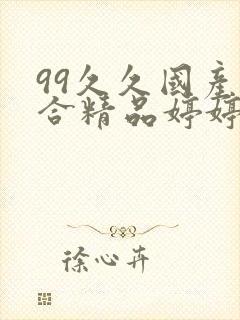 99久久國產
合精品婷婷
徐心卉